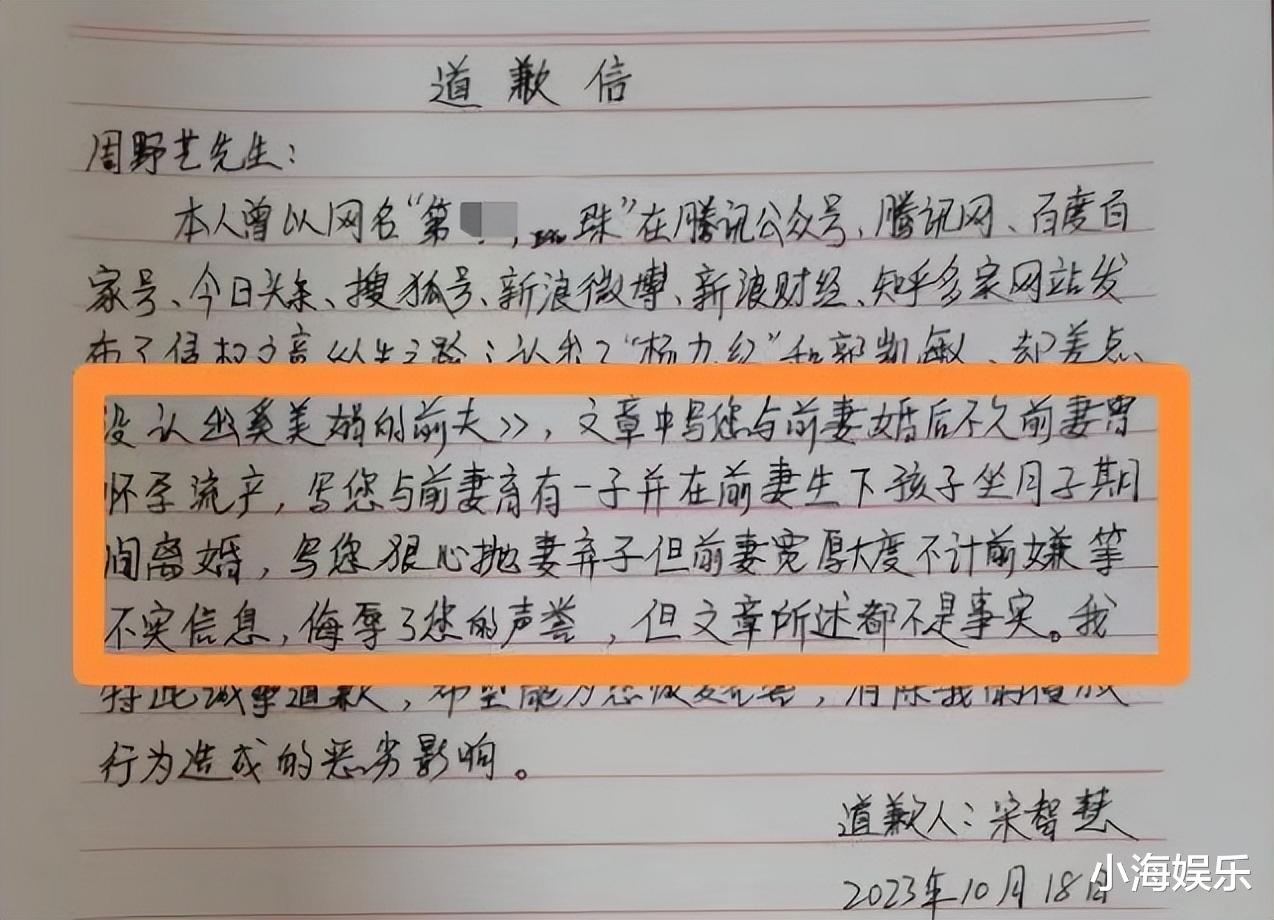 道歉信
周野芒先生：
本人曾以网名“第 珠”在腾讯公众号、腾讯网、百度百
家号、今日头条、搜狐号、新浪微博、新浪财经、知乎多家网站发
布了侵权文章《人生之路：认出了“杨力红”和郭凯敏、却差点
没认出奚美娟的前夫》，文章中写您与前妻婚后不久前妻曾
怀孕流产，写您与前妻育有一子并在前妻生下孩子坐月子期
间离婚，写您狠心抛妻弃子但前妻宽厚大度不计前嫌等
不实信息，侮辱了您的声誉，但文章所述都不是事实。我
特此诚挚道歉，希望能为您恢复名誉，消除我的侵权
行为造成的恶劣影响。
道歉人：宋智慧
2023年10月18日
小海娱乐